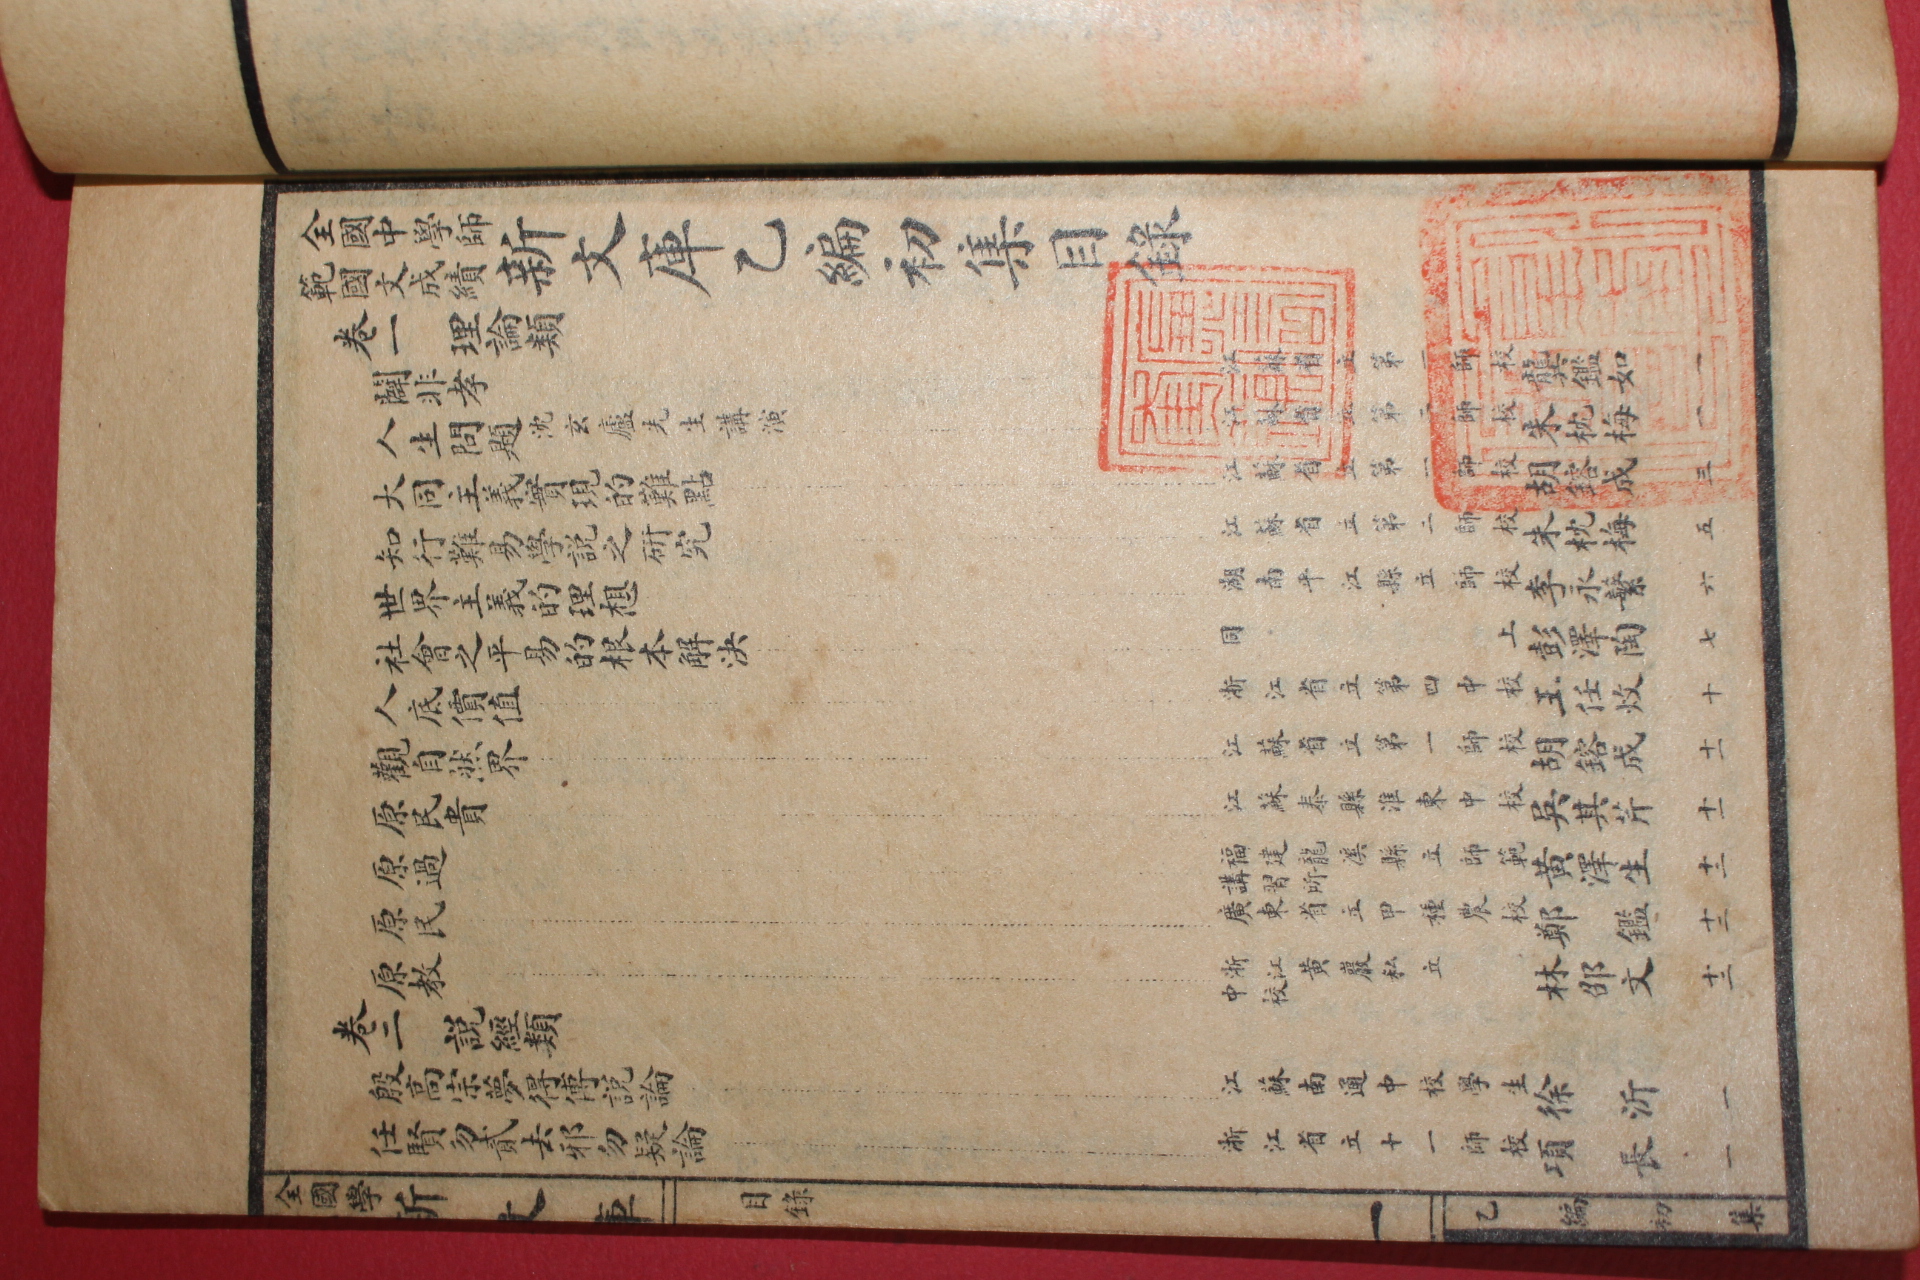 全國中學師範國文成績新文庫乙編初集目錄
卷一 理論類
闢非孝 江蘇省立第二師校 龔鑑如 一
人生問題 沈玄廬先生講演 江蘇省立第二師校 朱枕梅 一
大同主義實現的難點 江蘇省立第一師校 胡鎔成 三
知行難易學說之研究 江蘇省立第二師校 朱枕梅 五
世界主義的理想 湖南平江縣立師校 李永蘩 六
社會之平易的根本解決 同上 彭澤陶 七
人底價值 浙江省立第四中校 王任㪅 十
觀自然界 江蘇省立第一師校 胡鎔成 十一
原民貴 江蘇泰縣淮東中校 吳其芹 十一
原過 福建龍溪縣立師範講習所 黃澤生 十二
原民 廣東省立甲種農校 鄭鑑 十三
原教 浙江黃巖私立中校 林邵文 十三
卷二 說經類
殷高宗夢得傅說論 江蘇南通中校學生 徐沂 一
任賢勿貳去邪勿疑論 浙江省立十一師校 項長 一
全國學新文庫
目錄
一
乙編初集